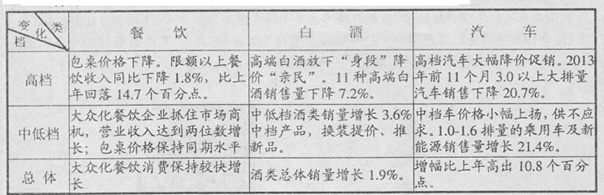 变化 类
档
餐 饮
白 酒
汽 车
高档
包桌价格下降。限额以上餐
饮收入同比下降 1.8%，比上
年回落 14.7 个百分点。
高端白酒放下“身段”降
价“亲民”。11 种高端白
酒销售量下降 7.2%。
高档汽车大幅降价促销。2013
年前 11 个月 3.0 以上大排量
汽车销售下降 20.7%。
中低档
大众化餐饮企业抓住市场商
机，营业收入达到两位数增
长；包桌价格保持同期水平
中低档酒类销量增长 3.6%
中档产品，换装提价、推
新品。
中档车价格小幅上扬，供不应
求。1.0-1.6 排量的乘用车及新
能源销售量增长 21.4%。
总 体
大众化餐饮消费保持较快增
长
酒类总体销量增长 1.9%。
增幅比上年高出 10.8 个百分
点。